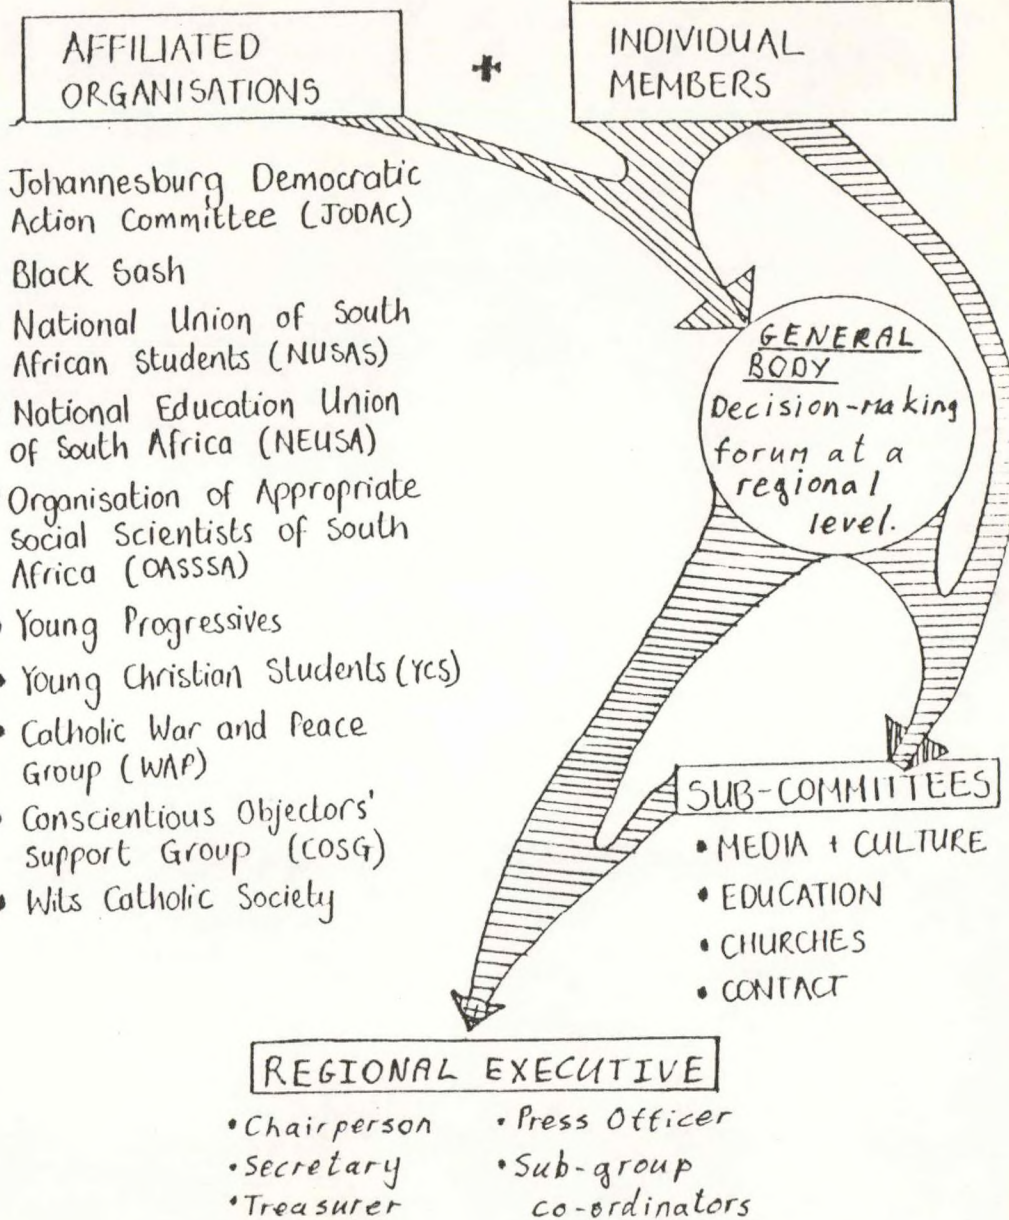 AFFILIATED
ORGANISATIONS
+
INDIVIDUAL
MEMBERS
Johannesburg Democratic
Action Committee (JODAC)
Black Sash
National Union of South
African Students (NUSAS)
National Education Union
of South Africa (NEUSA)
Organisation of Appropriate
Social Scientists of South
Africa (OASSSA)
• Young Progressives
• Young Christian Students (YCS)
• Catholic War and Peace
Group (WAP)
• Conscientious Objectors'
Support Group (COSG)
• Wits Catholic Society
GENERAL
BODY
Decision-making
forum at a
regional
level.
SUB-COMMITTEES
• MEDIA + CULTURE
• EDUCATION
• CHURCHES
• CONTACT
REGIONAL EXECUTIVE
• Chairperson
• Secretary
• Treasurer
• Press Officer
• Sub-group
co-ordinators